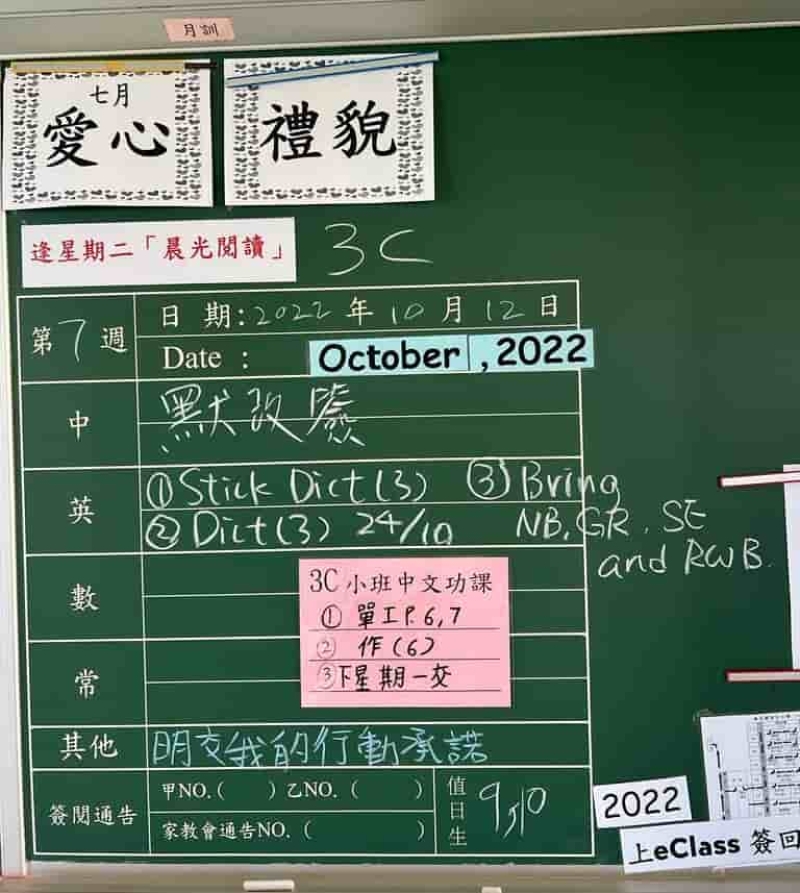 月訓
七月
愛心
禮貌
逢星期二「晨光閱讀」
3C
第7週
日 期:2022年10月12日
Date : October ,2022
中
默改簽
英
①Stick Dict(3) ③Bring
②Dict(3) 24/10 NB, GR, SE
and RWB.
數
3C小班中文功課
① 單工P.6,7
② 作(6)
③下星期一交
常
其他
明交我的行動承諾
簽閱通告
甲NO.( ) 乙NO.( )
家教會通告NO.( )
值日生
9,10
2022
上eClass 簽回